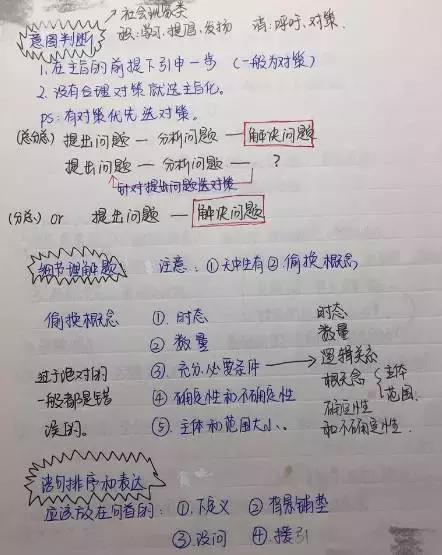 社会现象类
意图判断
积:学习、提倡、发扬 消:呼吁、对策.
1、在主旨的前提下引申一步 (一般为对策)
2. 没有合理对策就选主旨化。
ps:有对策优先选对策。
(总分总) 提出问题 — 分析问题 — 解决问题
提出问题 — 分析问题 — ?
针对提出问题选对策
(分总) or 提出问题 — 解决问题
细节理解题 注意:①无中生有②.偷换概念
偷换概念 ①.时态 时态
② 数量 数量
过于绝对的 ③.充分必要条件 → 逻辑关系
一般都是错 ④ 确定性和不确定性 概念 { 主体 范围.
误的。 ⑤.主体和范围大小. 确定性
和不确定性.
语句排序和表达
应该放在句首的:①.下定义 ② 背景铺垫
③.设问 ④.援引